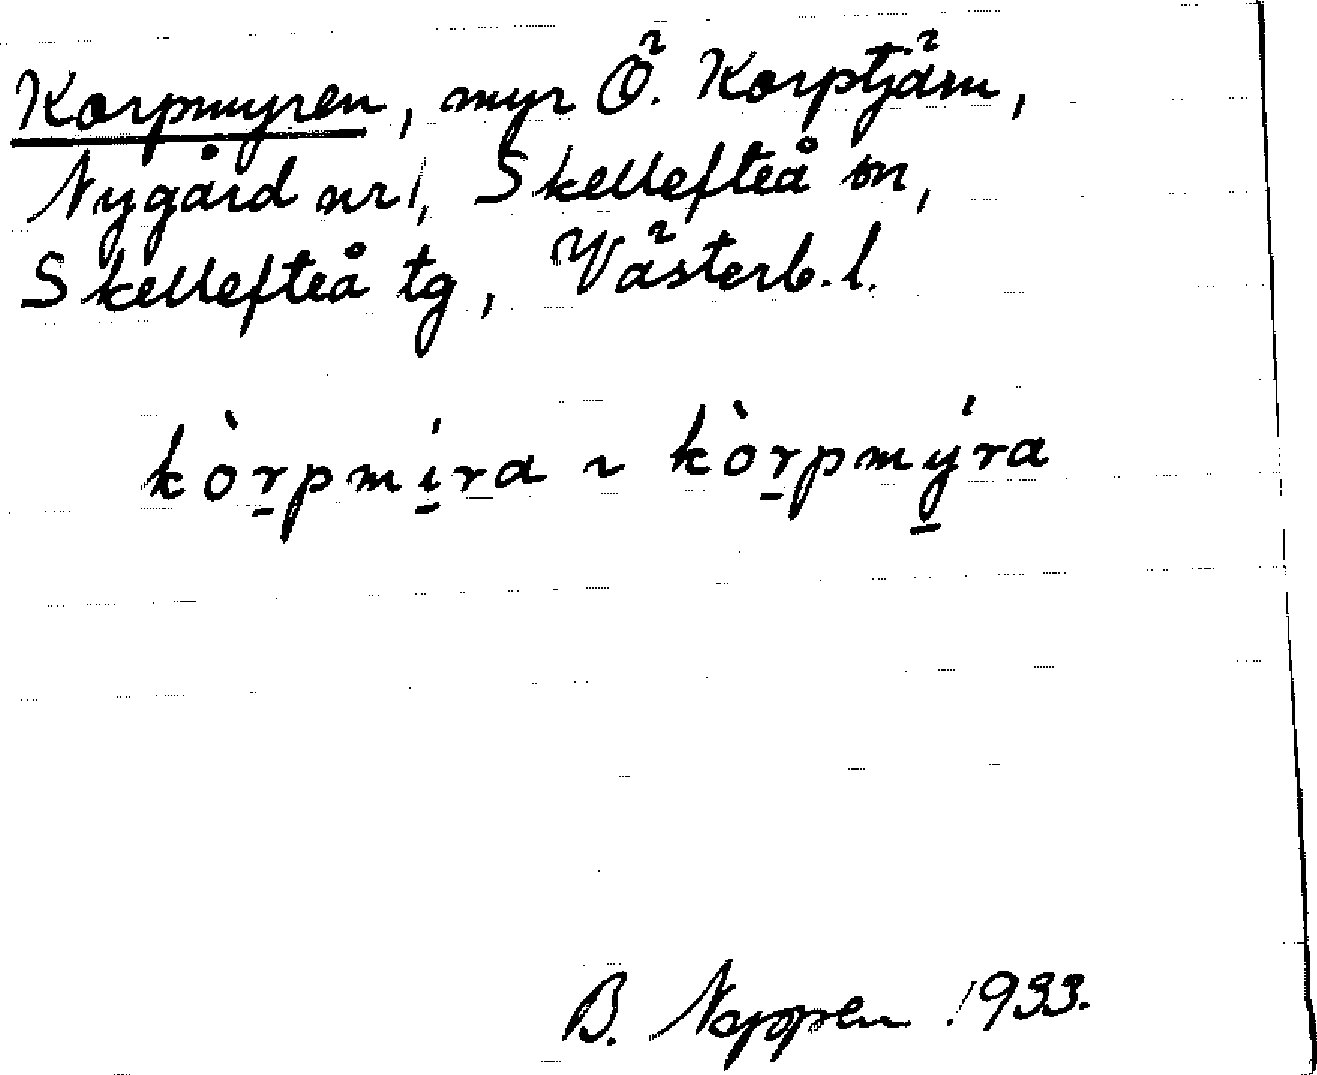 Korpmyren, myr Ö. Korptjärn,
Nygård nr 1, Skellefteå sn,
Skellefteå tg, Västerb. l.
kòr̠pmí̠ra ~ kòr̠pmý̠ra
B. 1933.